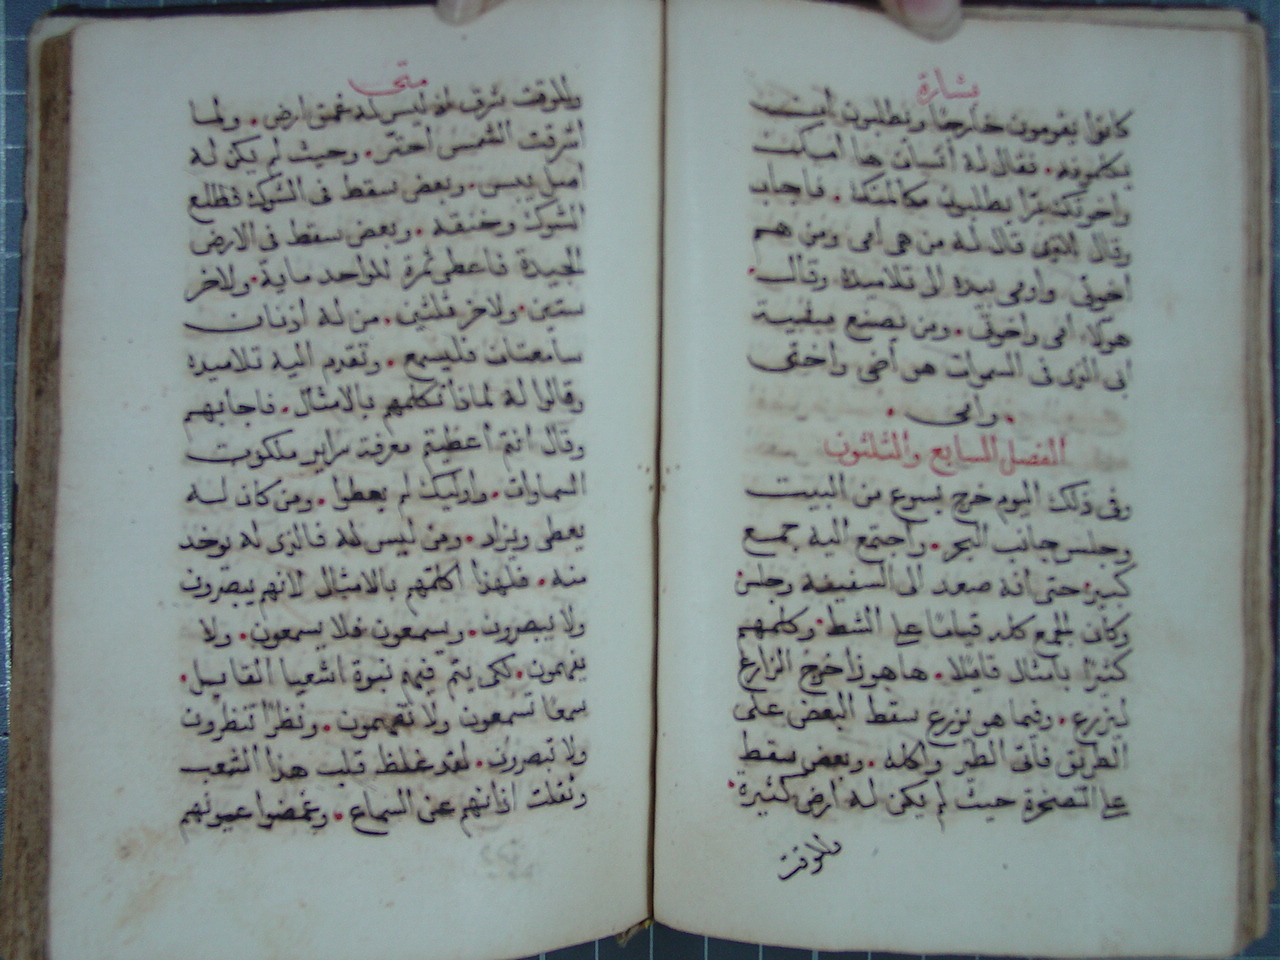 بشارة
كانوا يقومون خارجًا ويطلبون أن
يكلموه. فقال له انسان ها امك
واخوتك يطلبون مكالمتك. فاجاب
وقال للذى قال له من هى امى ومن هم
اخوتى. واومى بيده الى تلاميذه وقال.
هولاء امى واخوتى. ومن يصنع مشية
ابى الذى فى السموات هو أخى واختى
. وامى .
الفصل السابع والثلثون
وفى ذلك اليوم خرج يسوع من البيت
وجلس جانب البحر. واجتمع اليه جمع
كبير. حتى انه صعد الى السفينة وجلس
وكان الجمع كله قيامًا على الشط. وكلمهم
كثيرًا بامثال قايلا. ها هوذا خرج الزارع
ليزرع. وفيما هو يزرع سقط البعض على
الطريق فأتى الطير واكله. وبعض سقط
على الصخرة حيث لم يكن له ارض كثيرة.
وللوقت
متى
وللوقت شرق لانه ليس له عمق ارض. ولما
اشرقت الشمس احتر. وحيث لم يكن له
اصل يبس. وبعض سقط فى الشوك فطلع
الشوك وخنقه. وبعض سقط فى الارض
الجيدة فاعطى ثمرة للواحد ماية. ولاخر
ستين. ولاخر ثلثين. من له اذنان
سامعتان فليسمع. وتقدم اليه تلاميذه
وقالوا له لماذا تكلمهم بالامثال. فاجابهم
وقال انتم أعطيتم معرفة سراير ملكوت
السماوات. واوليك لم يعطوا. ومن كان له
يعطى ويزاد. ومن ليس له فالذى له يوخد
منه. فلهذا اكلمهم بالامثال لانهم يبصرون
ولا يبصرون. ويسمعون فلا يسمعون. ولا
يفهمون. لكى يتم فيهم نبوة اشعيا القايل.
سمعًا تسمعون ولا تفهمون. ونظرًا تنظرون
ولا تبصرون. لقد غلظ قلب هذا الشعب
وثقلت اذانهم عن السماع. وغمضوا عيونهم